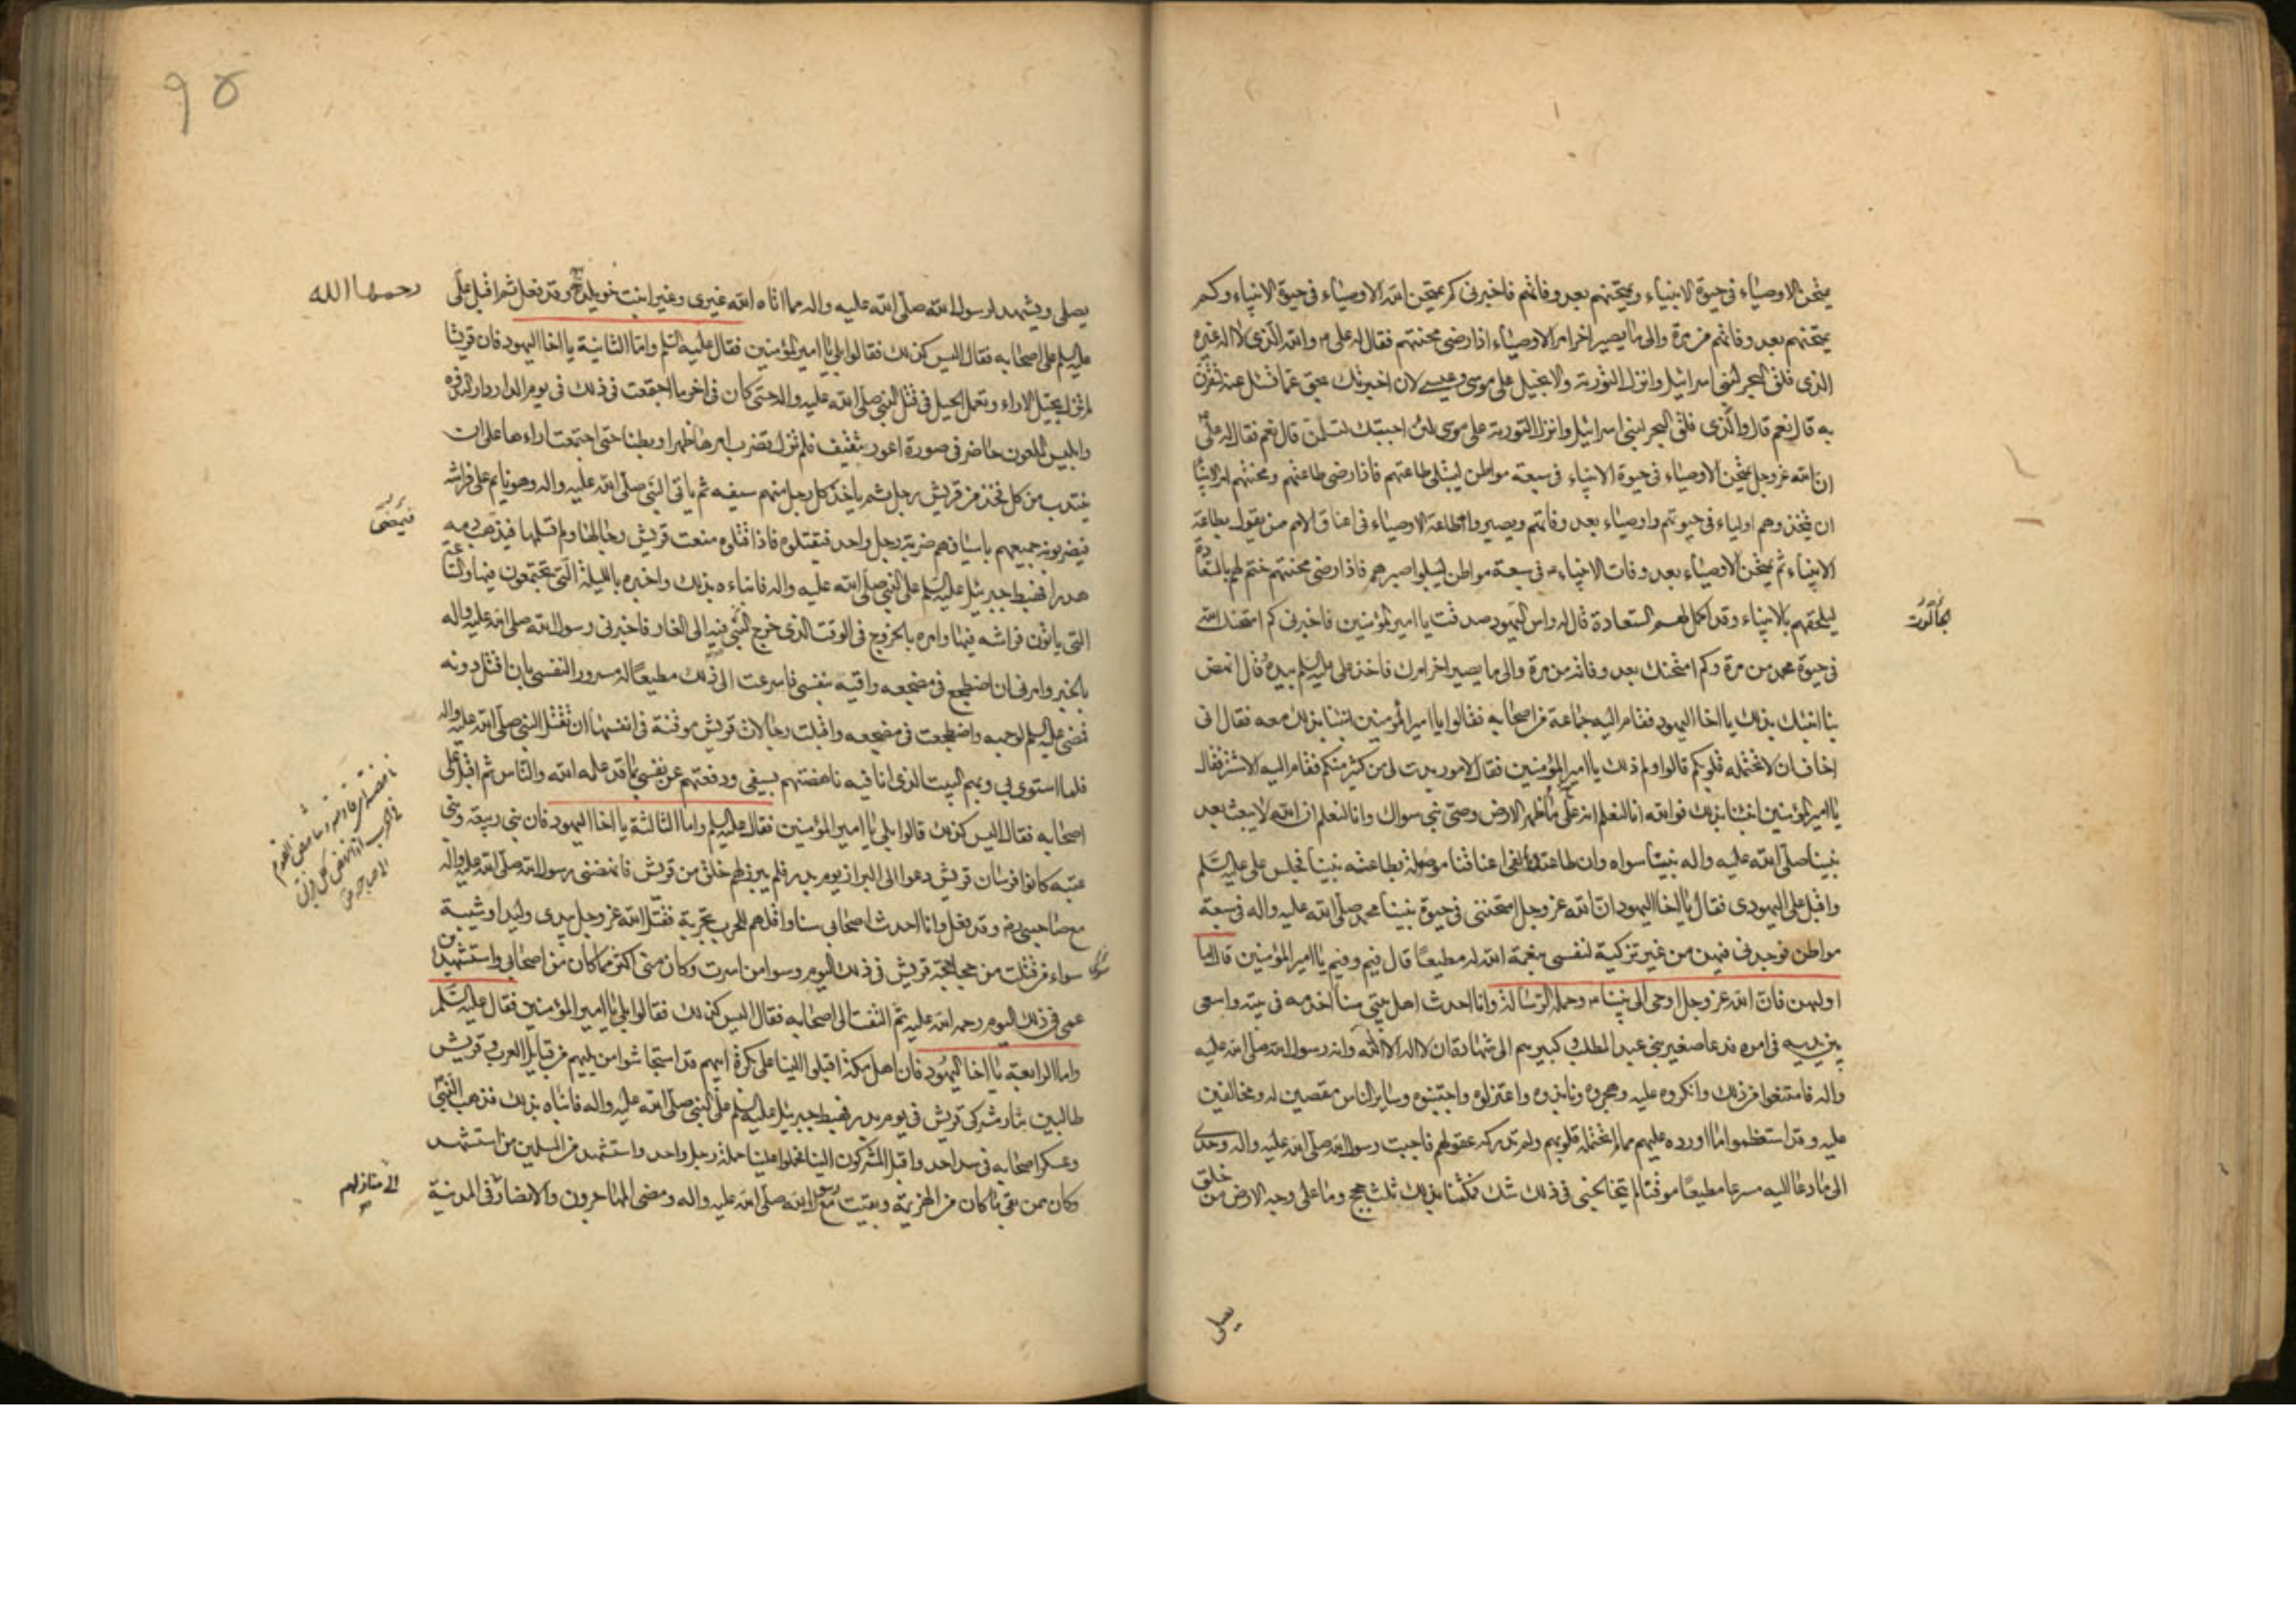 يمتحن الاوصياء في حيوة الانبياء ويمتحنهم بعد وفاتهم فاخبرني كم يمتحن الله الاوصياء في حيوة الانبياء وكم
يمتحنهم بعد وفاتهم من مرة والى ما يصير اخر امر الاوصياء اذا رضى محنتهم فقال له علي ع والله الذي لا اله غيره
الذي فلق البحر لبني اسرائيل وانزل التورية والانجيل على موسى وعيسى لان اخبرتك بحق عما تسئل عنه لتقرن
به قال نعم قال والذي فلق البحر لبني اسرائيل وانزل التورية على موسى لئن اجبتك لتسلمن قال نعم فقال له علي
ان الله عز وجل يمتحن الاوصياء في حيوة الانبياء في سبعة مواطن ليبتلي طاعتهم فاذا رضى طاعتهم ومحنتهم امر الانبياء
ان يتخذوهم اولياء في حيوتهم واوصياء بعد وفاتهم ويصير طاعة الاوصياء في اعناق الامم ممن يقول بطاعة
الانبياء ثم يمتحن الاوصياء بعد وفات الانبياء ع في سبعة مواطن ليبلو صبرهم فاذا رضى محنتهم ختم لهم بالسعادة
ليلحقهم بالانبياء وقد اكمل لهم السعادة قال له راس اليهود صدقت يا امير المؤمنين فاخبرني كم امتحنك الله
الجالوت
في حيوة محمد من مرة وكم امتحنك بعد وفاته من مرة والى ما يصير اخر امرك فاخذ علي عليه السلم بيده وقال انهض
بنا انبئك بذلك يا اخا اليهود فقام اليه جماعة من اصحابه فقالوا يا امير المؤمنين انبئنا بذلك معه فقال اني
اخاف ان لا تحتمله قلوبكم قالوا ولم ذلك يا امير المؤمنين فقال لامور بدت لي من كثير منكم فقام اليه الاشتر فقال
يا امير المؤمنين انبئنا بذلك فوالله انا لنعلم انه ما على ظهر الارض وصي نبي سواك وانا لنعلم ان الله لا يبعث بعد
نبينا صلى الله عليه واله نبيا سواه وان طاعتك لفي اعناقنا موصولة بطاعة نبينا فجلس علي عليه السلم
واقبل على اليهودي فقال يا اخا اليهود ان الله عز وجل امتحنني في حيوة نبينا محمد صلى الله عليه واله في سبعة
مواطن فوجدني فيهن من غير تزكية لنفسي بنعمة الله له مطيعا قال فيم وفيم يا امير المؤمنين قال اما
اولهن فان الله عز وجل اوحى الى نبينا ص وحمله الرسالة وانا احدث اهل بيتي سنا اخدمه في بيته واسعى
بين يديه في امره فدعا صغير بني عبد المطلب وكبيرهم الى شهادة ان لا اله الا الله وانه رسول الله صلى الله عليه
واله فامتنعوا من ذلك وانكروه عليه وهجروه ونابذوه واعتزلوه واجتنبوه وساير الناس مقصين له ومخالفين
عليه وقد استعظموا ما اورده عليهم مما لم تحتمله قلوبهم ولم تدركه عقولهم فاجبت رسول الله صلى الله عليه واله وحدي
الى ما دعا اليه مسرعا مطيعا موقنا لم يتخالجني في ذلك شك فمكثنا بذلك ثلث حجج وما على وجه الارض من خلق
يصلي
يصلي ويشهد لرسول الله صلى الله عليه واله مما اتاه الله غيري وغير ابنت خويلد وقد فعل ثم اقبل علي
رحمها الله
عليه السلم على اصحابه فقال اليس كذلك فقالوا بلى يا امير المؤمنين فقال عليه السلم واما الثانية يا اخا اليهود فان قريشا
لم تزل تجيل الاراء وتعمل الحيل في قتل النبي صلى الله عليه واله حتى كان في اخر ما اجتمعت في ذلك في يوم الدار دار الندوة
وابليس الملعون حاضر في صورة اعور ثقيف فلم تزل تضرب امرها ظهرا وبطنا حتى اجتمعت اراءها على ان
ينتدب من كل فخذ من قريش رجل ثم ياخذ كل رجل منهم سيفه ثم ياتي النبي صلى الله عليه واله وهو نايم على فراشه
فيضربونه جميعهم باسيافهم ضربة رجل واحد فيقتلوه فاذا قتلوه منعت قريش رجالها ولم تسلمها فيذهب دمه
فيمضى
هدرا فهبط جبرئيل عليه السلم على النبي صلى الله عليه واله فانباءه بذلك واخبره بالليلة التي يجتمعون فيها والساعة
التي ياتون فراشه فيها وامره بالخروج في الوقت الذي خرج النبي فيه الى الغار فاخبرني رسول الله صلى الله عليه واله
بالخبر وامرني ان اضطجع في مضجعه واقيه بنفسي فاسرعت الى ذلك مطيعا له مسرورا لنفسي بان اقتل دونه
فمضى عليه السلم لوجهه واضطجعت في مضجعه واقبلت رجالات قريش موقنة في انفسها ان تقتل النبي صلى الله عليه واله
فلما استوى بي وبهم البيت الذي انا فيه ناهضتهم بسيفي ودفعتهم عن نفسي بما قد علمه الله والناس ثم اقبل على
اصحابه فقال اليس كذلك قالوا بلى يا امير المؤمنين فقال عليه السلم واما الثالثة يا اخا اليهود فان بني ربيعة وبني
عتبه كانوا فرسان قريش دعوا الى البراز يوم بدر فلم يبرز لهم خلق من قريش فانهضني رسول الله صلى الله عليه واله
مع صاحبي رض وقد فعل وانا احدث اصحابي سنا واقلهم للحرب تجربة فقتل الله عز وجل بيدي وليدا وشيبة
سواء من قتلت من جحاجحة قريش في ذلك اليوم وسوا من اسرت وكان مني اكثر مما كان من اصحابي واستشهد ابن
سوى
عمي في ذلك اليوم رحمه الله عليه ثم التفت الى اصحابه فقال اليس كذلك فقالوا بلى يا امير المؤمنين فقال عليه السلم
واما الرابعة يا اخا اليهود فان اهل مكة اقبلوا الينا على بكرة ابيهم قد استجاشوا من يليهم من قبايل العرب وقريش
طالبين بثار مشركي قريش في يوم بدر فهبط جبرئيل عليه السلم على النبي صلى الله عليه واله فانباه بذلك فذهب النبي
وعسكر اصحابه في سد احد واقبل المشركون الينا فحملوا علينا حملة رجل واحد واستشهد من المسلمين من استشهد
وكان ممن بقي ما كان من الهزيمة وبقيت مع رسول الله صلى الله عليه واله ومضى المهاجرون والانصار في المدينة
الى منازلهم